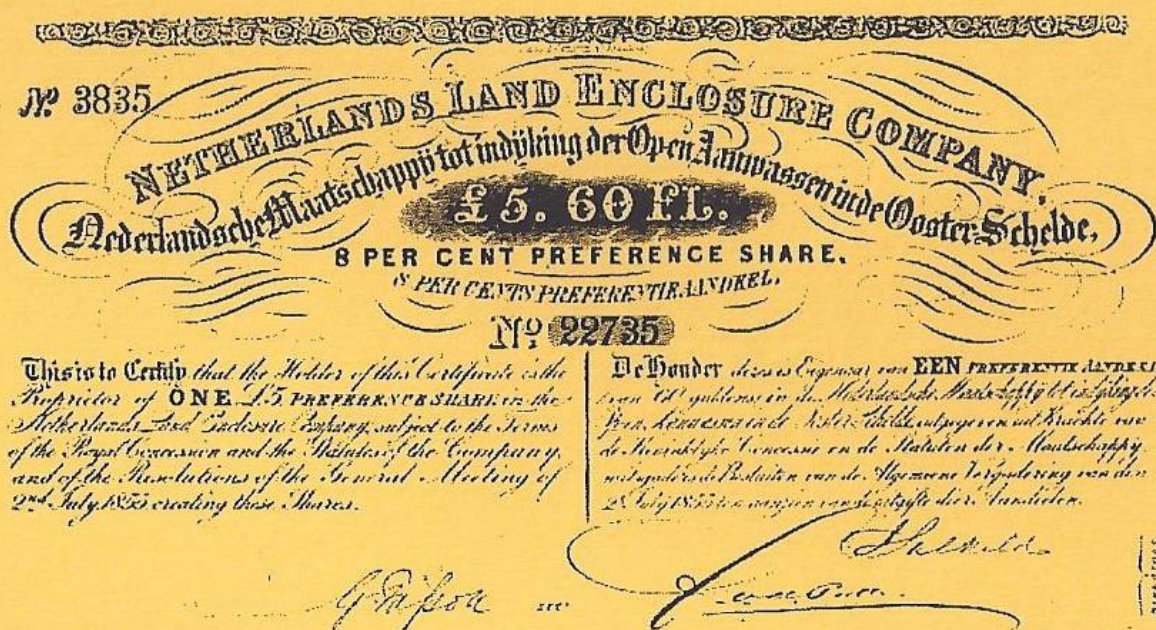 Nº 3835
NETHERLANDS LAND ENCLOSURE COMPANY.
Nederlandsche Maatschappij tot indijking der Open Aanwassen in de Ooster-Schelde,
£5. 60 FL.
8 PER CENT PREFERENCE SHARE.
8 PER CENTS PREFERENTIE AANDEEL.
Nº 22735
This is to Certify that the Holder of this Certificate is the
Proprietor of ONE £5 PREFERENCE SHARE in the
Netherlands Land Enclosure Company, subject to the Terms
of the Royal Concession and the Statutes of the Company,
and of the Resolutions of the General Meeting of
2nd July 1855 creating these Shares.
De Houder dezes is Eigenaar van EEN PREFERENTIE AANDEEL
van 60 guldens in de
uitgegeven uit Krachte van
de Koninklijke Concessie en de Statuten der Maatschappij
Besluiten van de Algemeene Vergadering van den
2e July 1855 ten aanzien van de uitgifte dier Aandeelen.